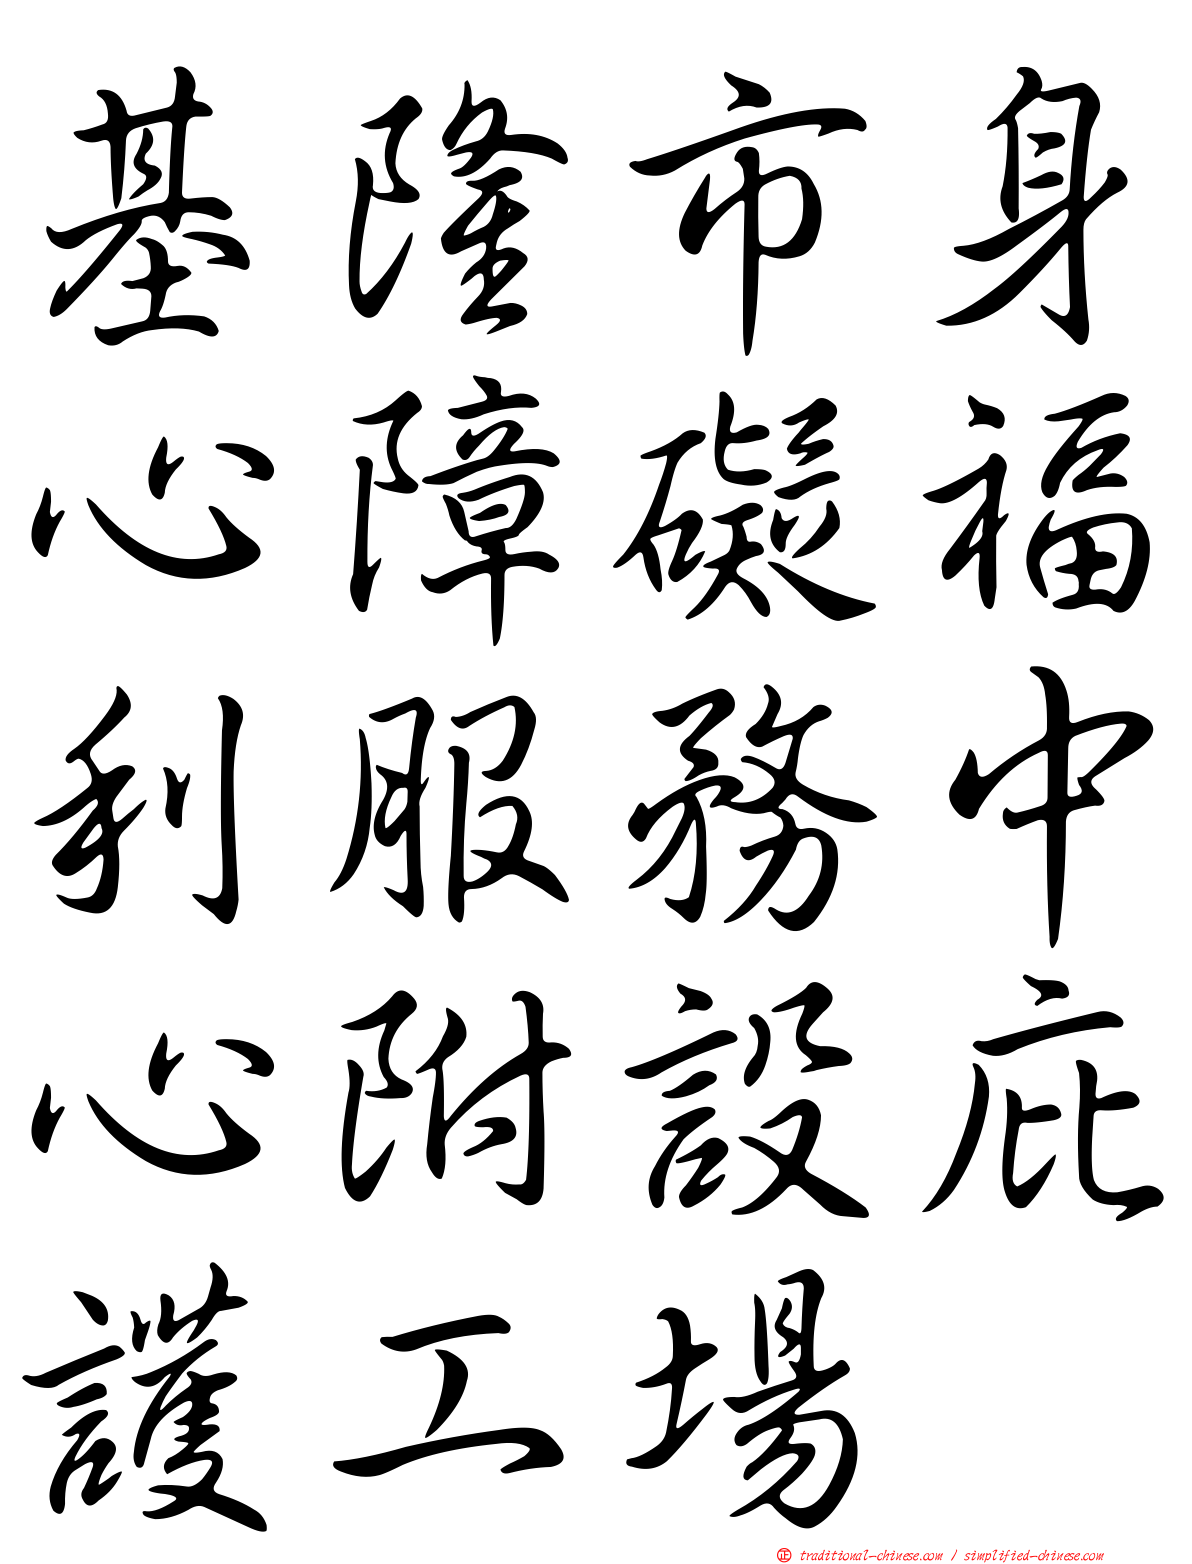 基隆市身
心障礙福
利服務中
心附設庇
護工場
正 traditional-chinese.com / simplified-chinese.com